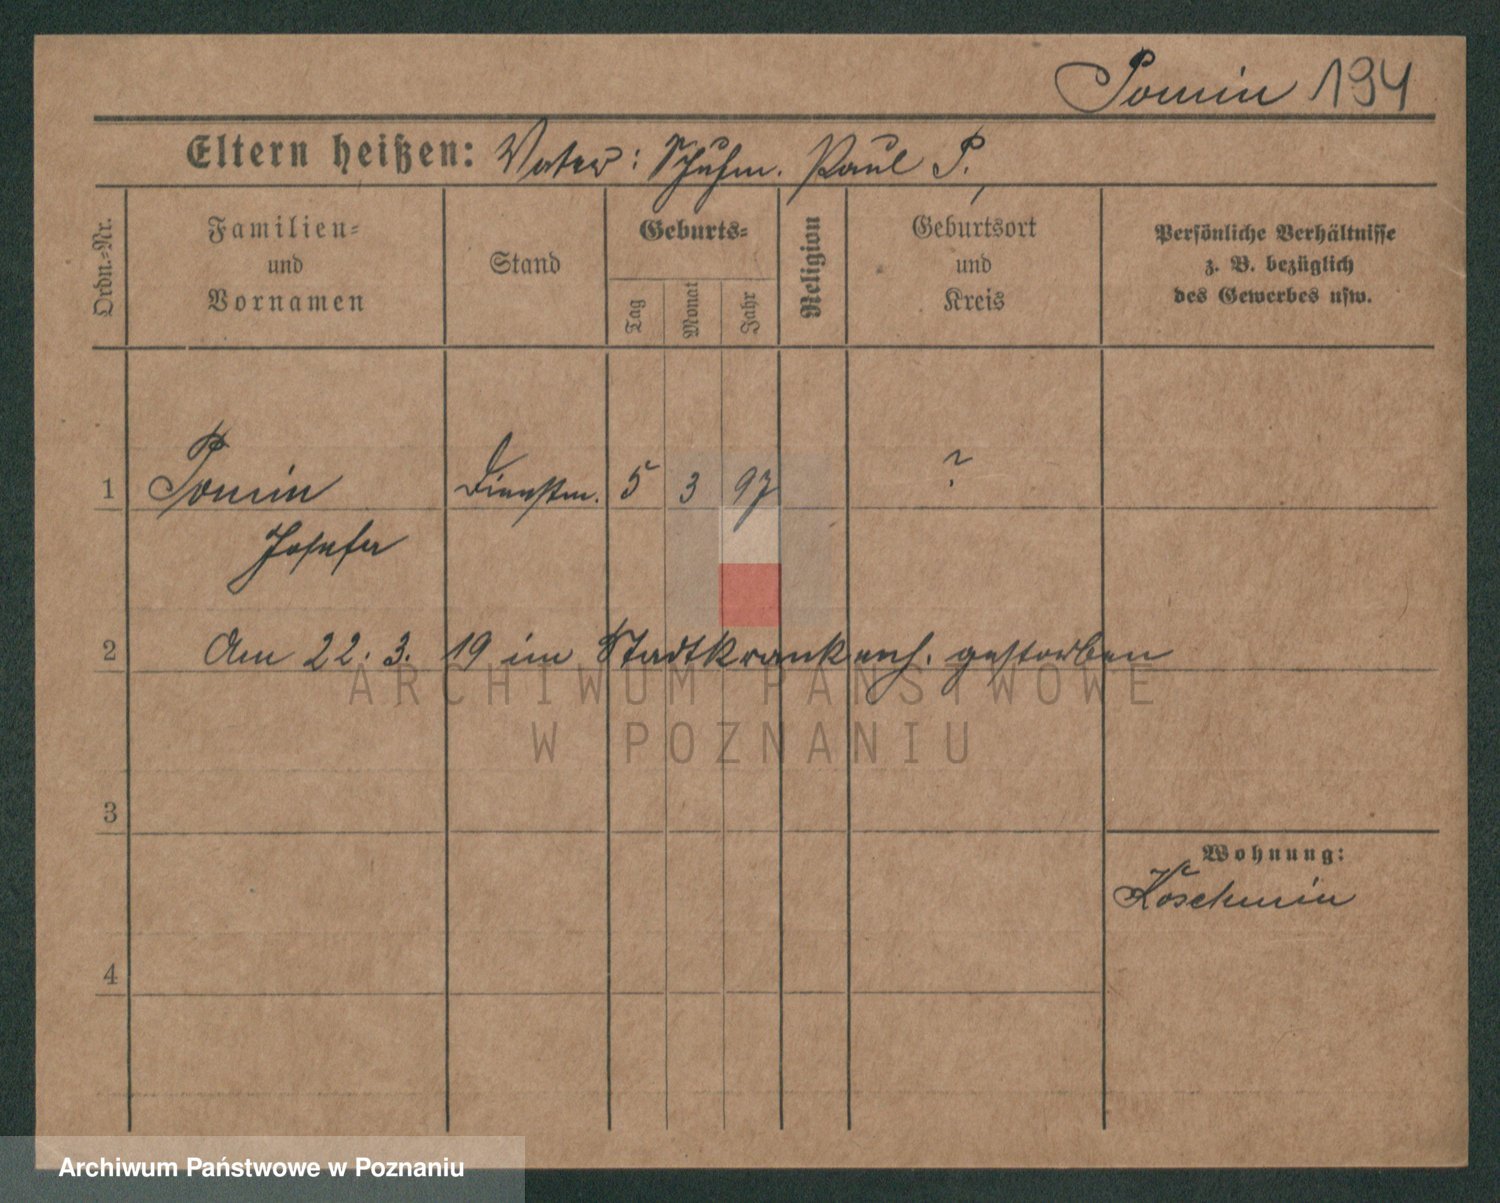 Pomin 194
Eltern heißen: Vater: Schuhm. Paul P.
Ordn.-Nr.
Familien-
und
Vornamen
Stand
Geburts-
Tag
Monat
Jahr
Religion
Geburtsort
und
Kreis
Persönliche Verhältnisse
z. B. bezüglich
des Gewerbes usw.
1 Pomin Dienstm. 5 3 97 ?
Josefa
2 Am 22. 3. 19 im Stadtkrankenh. gestorben
ARCHIWUM PAŃSTWOWE
W POZNANIU
3
Wohnung:
Koschmin
4
Archiwum Państwowe w Poznaniu